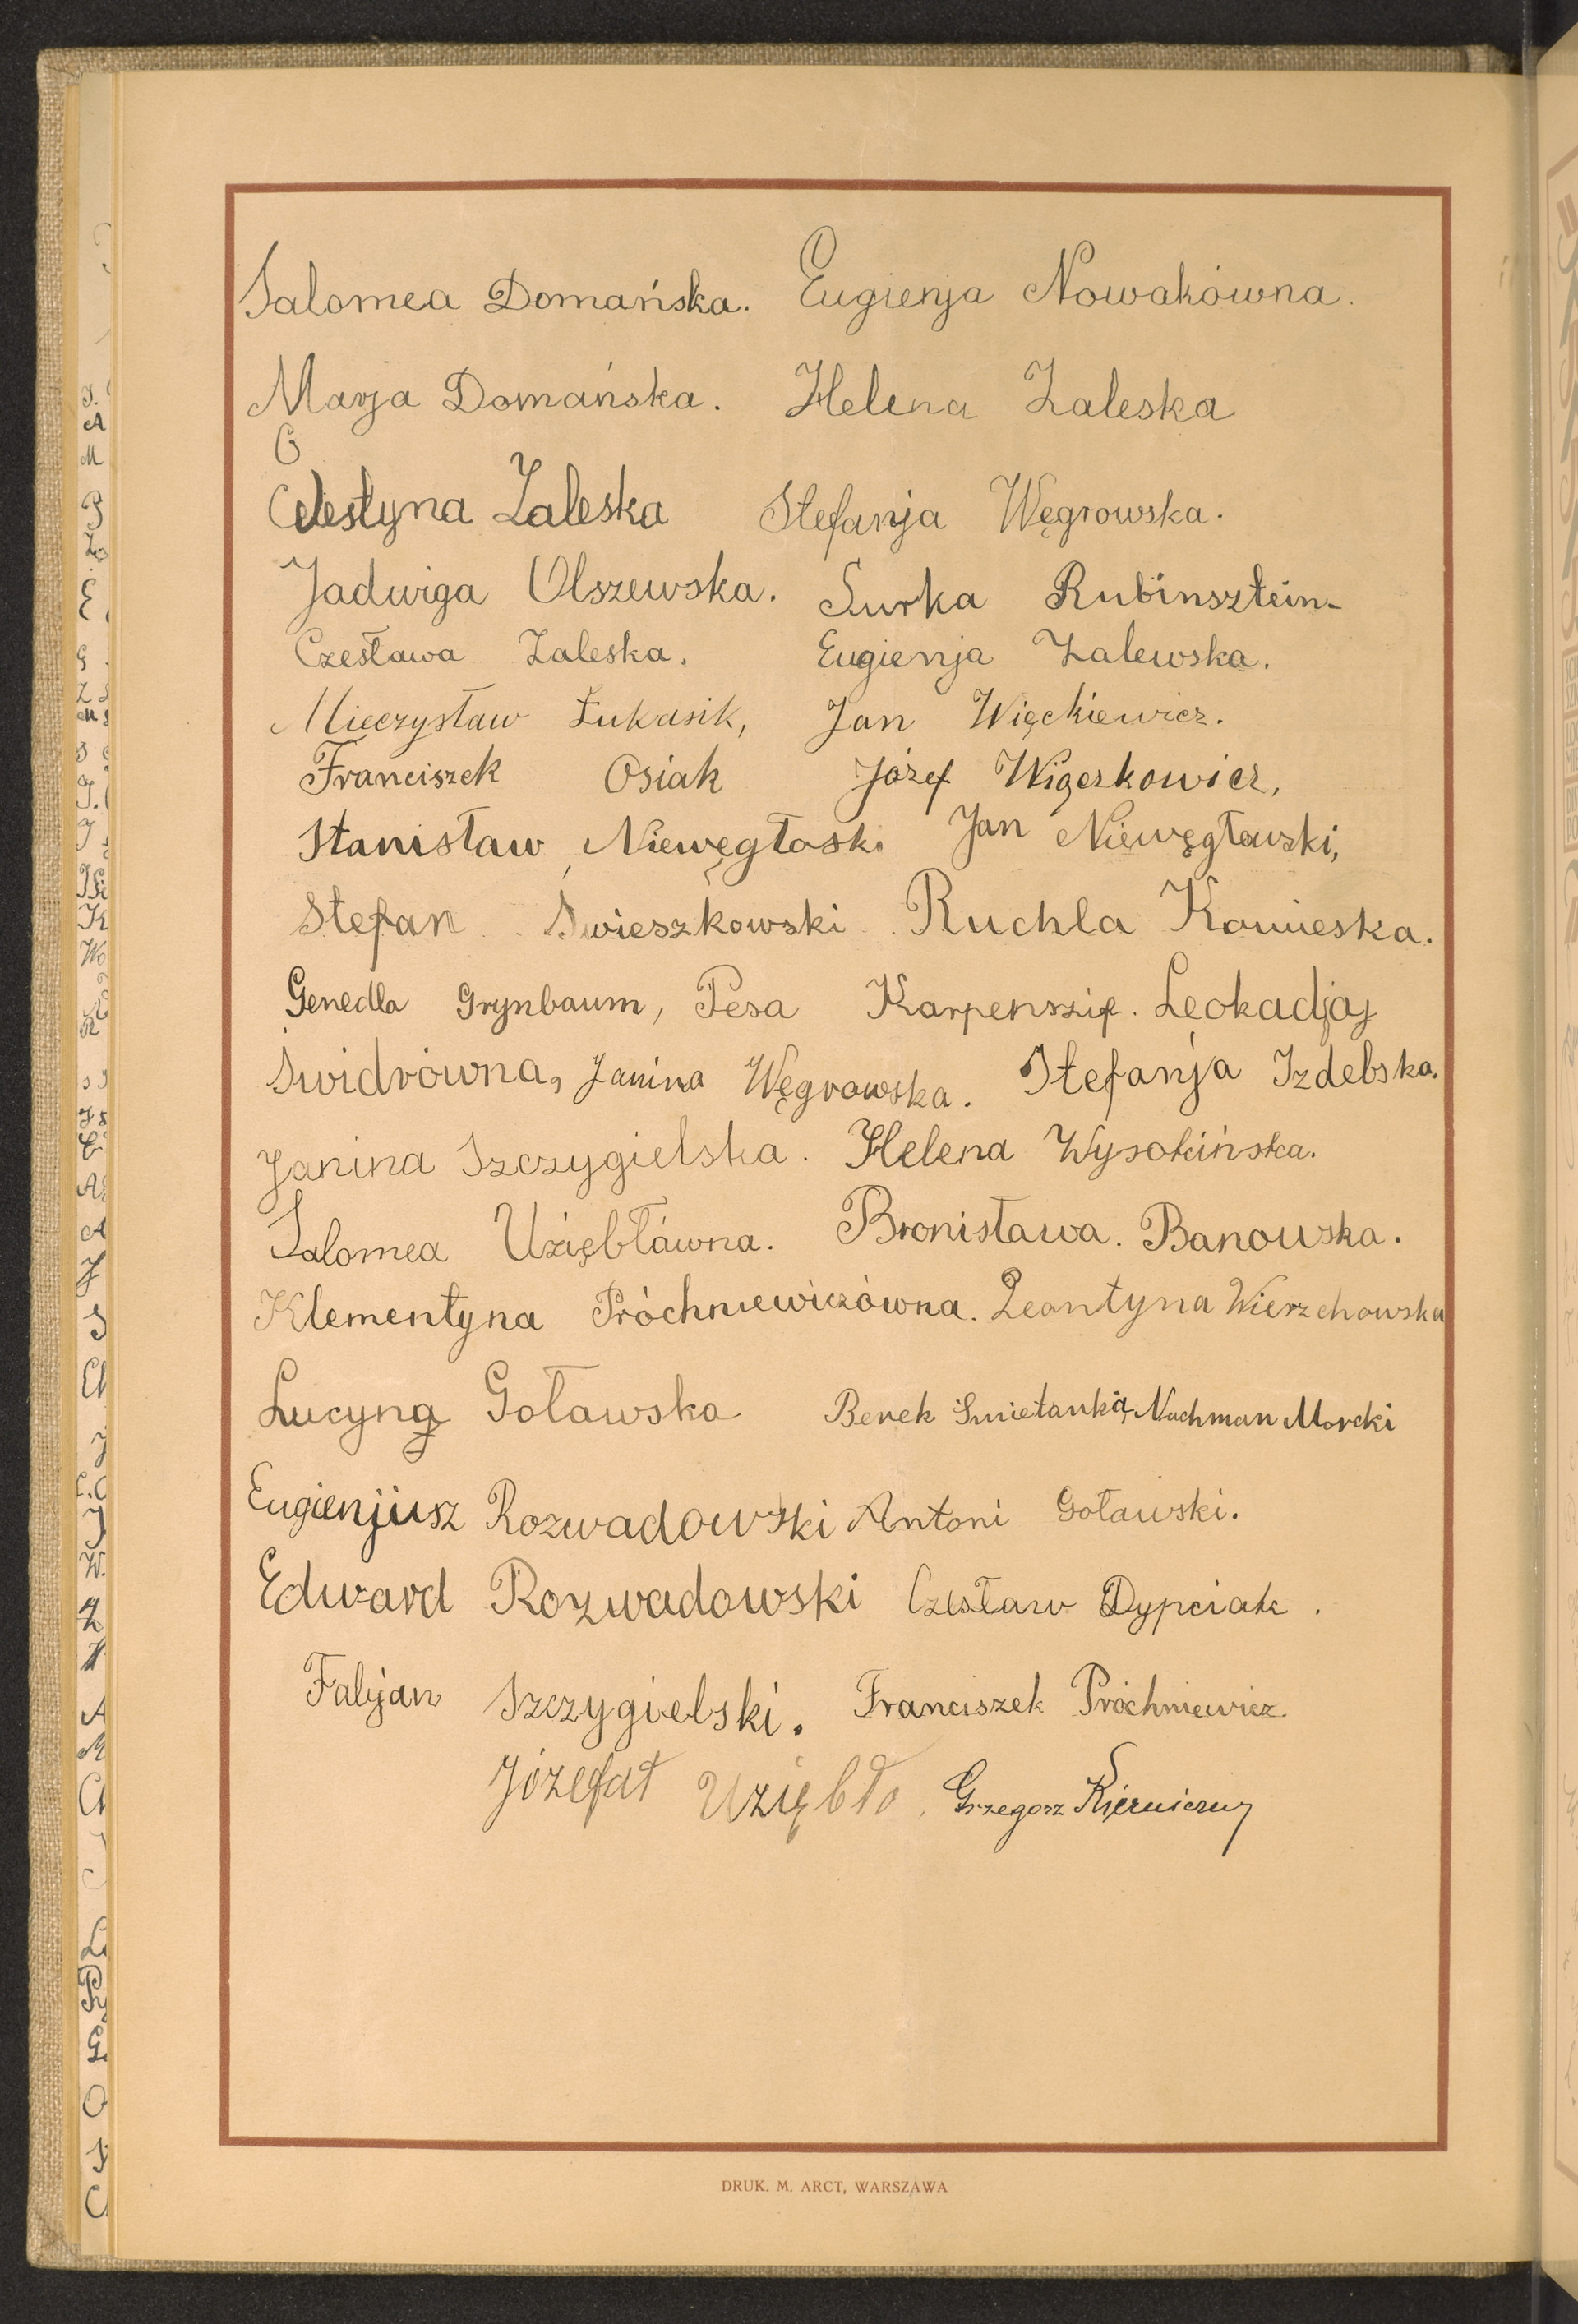 Salomea Domańska. Eugienja Nowakówna.
Marja Domańska. Helena Zaleska
Celestyna Zaleska Stefanja Węgrowska.
Jadwiga Olszewska. Surka Rubinsztein-
Czesława Zaleska. Eugienja Zalewska.
Mieczysław Łukasik, Jan Więckiewicz.
Franciszek Osiak Józef Więczkowicz,
Stanisław Niewęgłoski Jan Niewęgłowski,
Stefan Świeszkowski Ruchla Konieska.
Genedla Grynbaum, Pesa Karpenszip. Leokadja
Świdrówna, Janina Węgrowska. Stefanja Izdebska.
Janina Szczygielska. Helena Wysokińska.
Salomea Uziębłówna. Bronisława. Banowska.
Klementyna Próchniewiczówna. Leontyna Wierzchowska
Lucyna Goławska Berek Smietanka, Nachman Morcki
Eugienjusz Rozwadowski Antoni Goławski.
Edward Rozwadowski Czesław Dypciak.
Falijan Szczygielski. Franciszek Próchniewicz.
Józefat Uziębło. Grzegorz
DRUK. M. ARCT, WARSZAWA